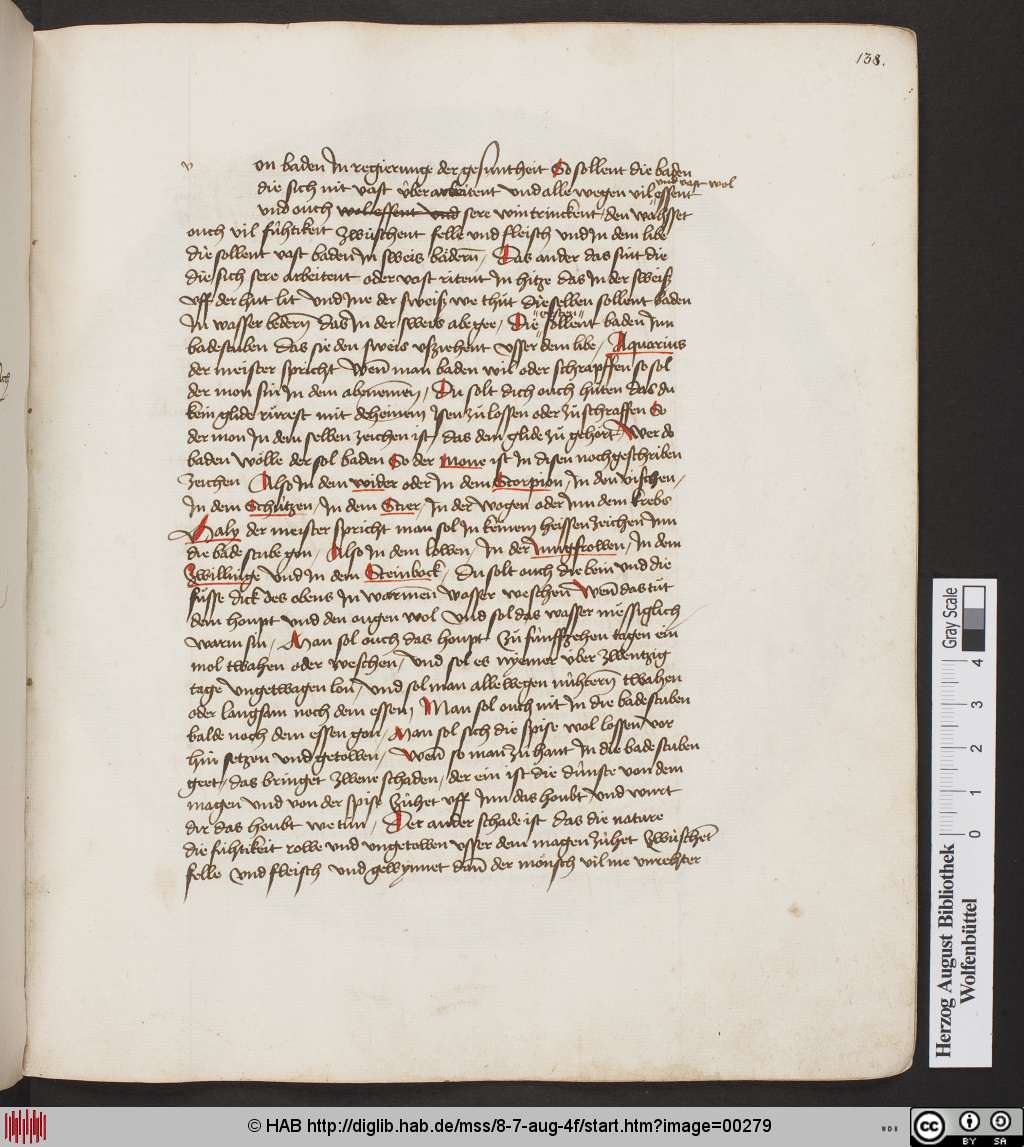 138.
v on baden In regierunge der gesuntheit So sollent die baden
die sich nit vast überarbeitent Vnd alle wegen vil essent vnd vast wol
vnd ouch wol essent vnd sere win trinckent / den wahsset
ouch vil fühtikeit zwüschent felle vnd fleisch Vnd In dem libe
die sollent vast baden In sweis bädern / Das ander das sint die
die sich sere arbeitent oder vast ritent In hitze das In der sweiß
vff der hut lit Vnd Ine der sweiß we thüt die selben sollent baden
In wasser bedern das In der sweis abe gee / Die ersten sollent baden Inn
badestuben das sie den sweis vsziehent vsser dem libe / Aquarius
der meister spricht Wenn man baden wil oder schrapffen so sol
der mon sin In dem abenemen / Du solt dich ouch hüten das du
kein glide rürest mit deheinem Isen zü lossen oder zü schraffen So
der mon In dem selben zeichen ist / das dem glide zü gehört / Wer do
baden wölle der sol baden So der mone ist In disen nochgeschriben
zeichen Also In dem wider oder In dem Scorpion / In den vischen /
In dem Schützen / In dem Stier / In der wogen oder Inn dem krebs
Haly der meister spricht man sol In keinem heissen zeichen Inn
die bade stube gon / Also In dem lowen / In der Iungfrowen / In dem
Zwillinge Vnd In dem Steinbock / Du solt ouch die bein vnd die
füsse dick des obens In warmen wasser weschen Wenn das tüt
dem houpt vnd den ougen wol Vnd sol das wasser messiglich
warm sin / Man sol ouch das houpt Zü fünffzehen tagen ein
mol twahen oder weschen / Vnd sol es nyemer über zwentzig
tage vngetwagen lon / Vnd sol man alle wegen nühtern twahen
oder langsam noch dem essen / Man sol ouch nit In die badestuben
balde noch dem essen gon / Man sol sich die spise wol lossen vor
hin setzen vnd getowen / Wenn so man zü hant In die bade stuben
geet / das bringet zwene schaden / der ein ist die dünste von dem
magen vnd von der spise zühet vff Inn das houbt / Vnd wurt
dir das houbt we tün / Der ander schade ist das die nature
die fühtikeit rowe vnd vngetowen vsser dem magen zühet Zwüschent
felle Vnd fleisch Vnd gewynnet dann der mönsch vil me vnrehter
Gray Scale
0 1 2 3 4
Herzog August Bibliothek
Wolfenbüttel
© HAB http://diglib.hab.de/mss/8-7-aug-4f/start.htm?image=00279
WDB
CC BY SA